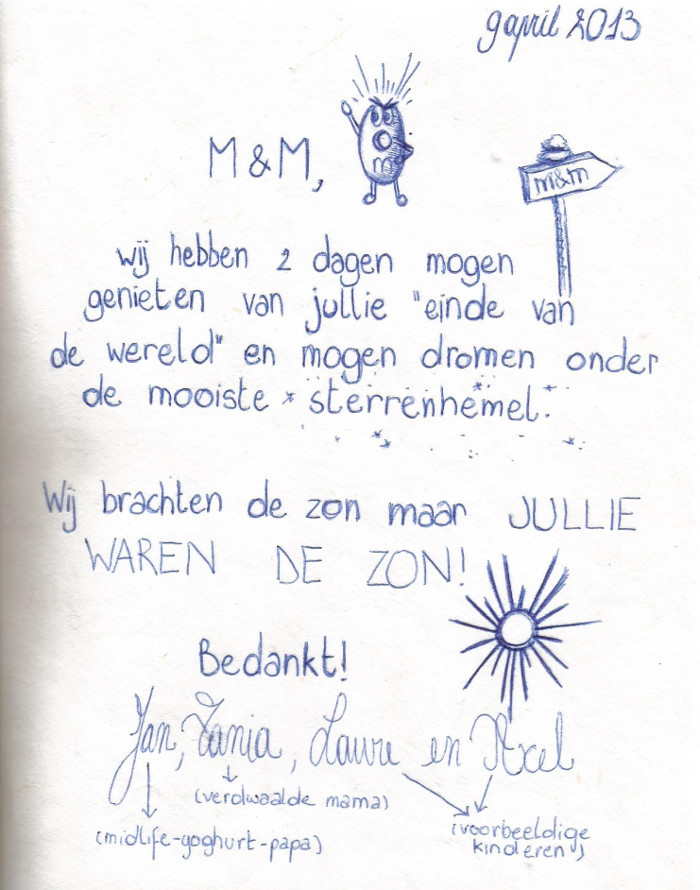 9 april 2013
M & M,
m
m&m
wij hebben 2 dagen mogen
genieten van jullie "einde van
de wereld" en mogen dromen onder
de mooiste sterrenhemel.
Wij brachten de zon maar JULLIE
WAREN DE ZON!
Bedankt!
Jan, Tania, Laure en Axel
(verdwaalde mama)
(midlife-yoghurt-papa)
(voorbeeldige
kinderen)